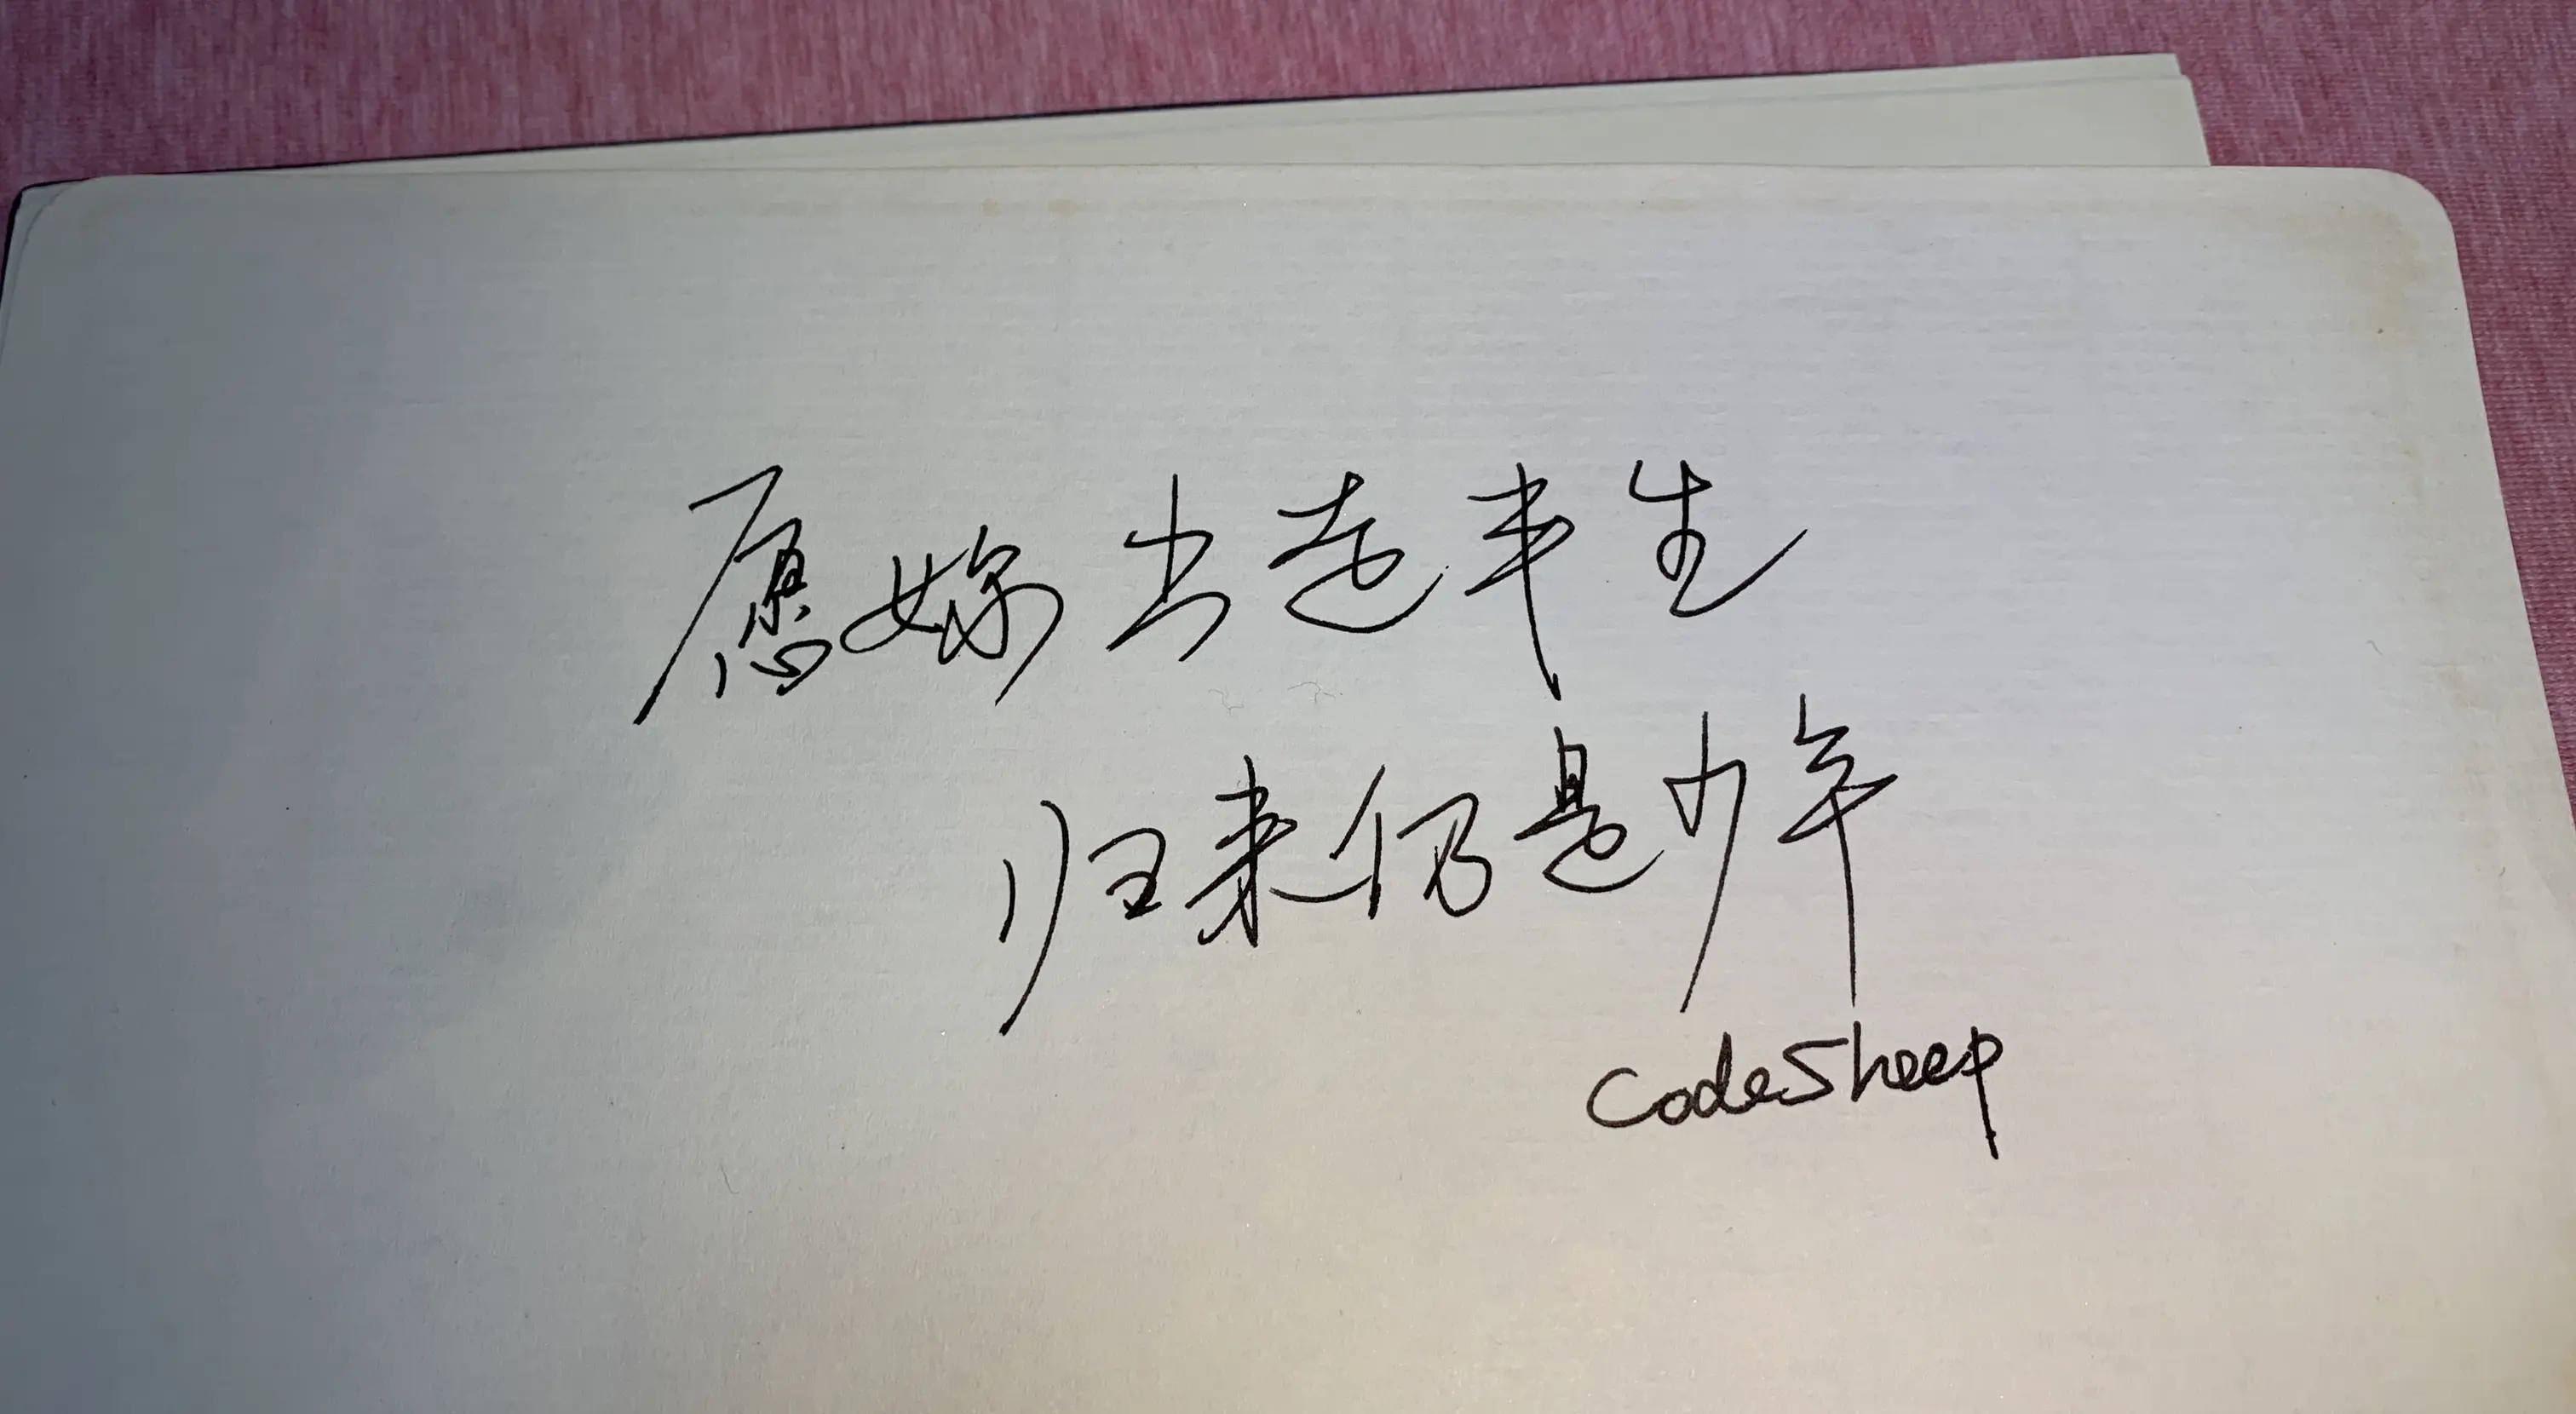 愿你出走半生
归来仍是少年
CodeSheep